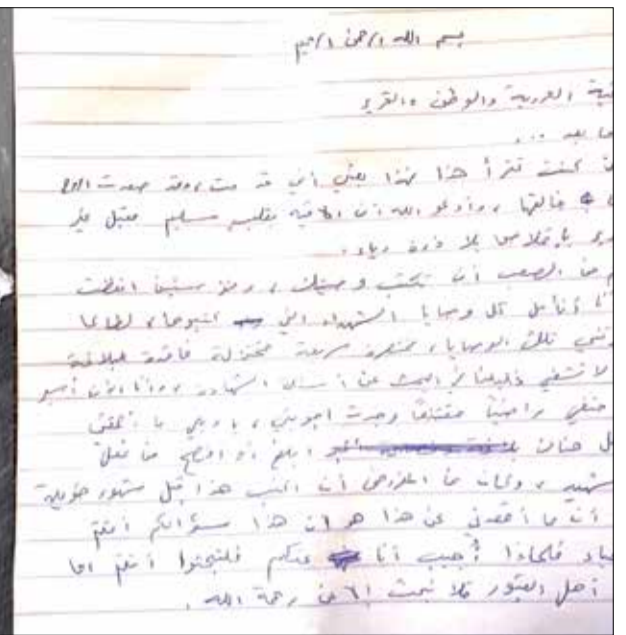 بسم الله الرحمن الرحيم
العروبة والوطن والتحرير
بعد ...
كنت تقرأ هذا فهذا يعني أني قد مت، وقد صعدت الروح
خالقها، وأدعو الله أن ألاقيه بقلب سليم مقبل غير
بإخلاص بلا ذرة رياء.
من الصعب أن تكتب وصيتك، ومنذ سنين انقضت
أتأمل كل وصايا الشهداء التي كتبوها، لطالما
تلك الوصايا، مختصرة سريعة مختزلة فاقدة للبلاغة
لا تشفي غليلنا في البحث عن أسئلة الشهادة، وأنا الآن أسير
حتفي راضياً مقتنعاً وجدت أجوبتي، يا ويلي ما أحمقني
هناك أبلغ أو أفصح من فعل
، وكان من المفروض أن أكتب هذا قبل شهور طويلة
أن ما أقعدني عن هذا هو أن هذا سؤالكم أنتم
فلماذا أجيب أنا عنكم فلتبحثوا أنتم أما
أهل القبور فلا نبحث إلا عن رحمة الله.